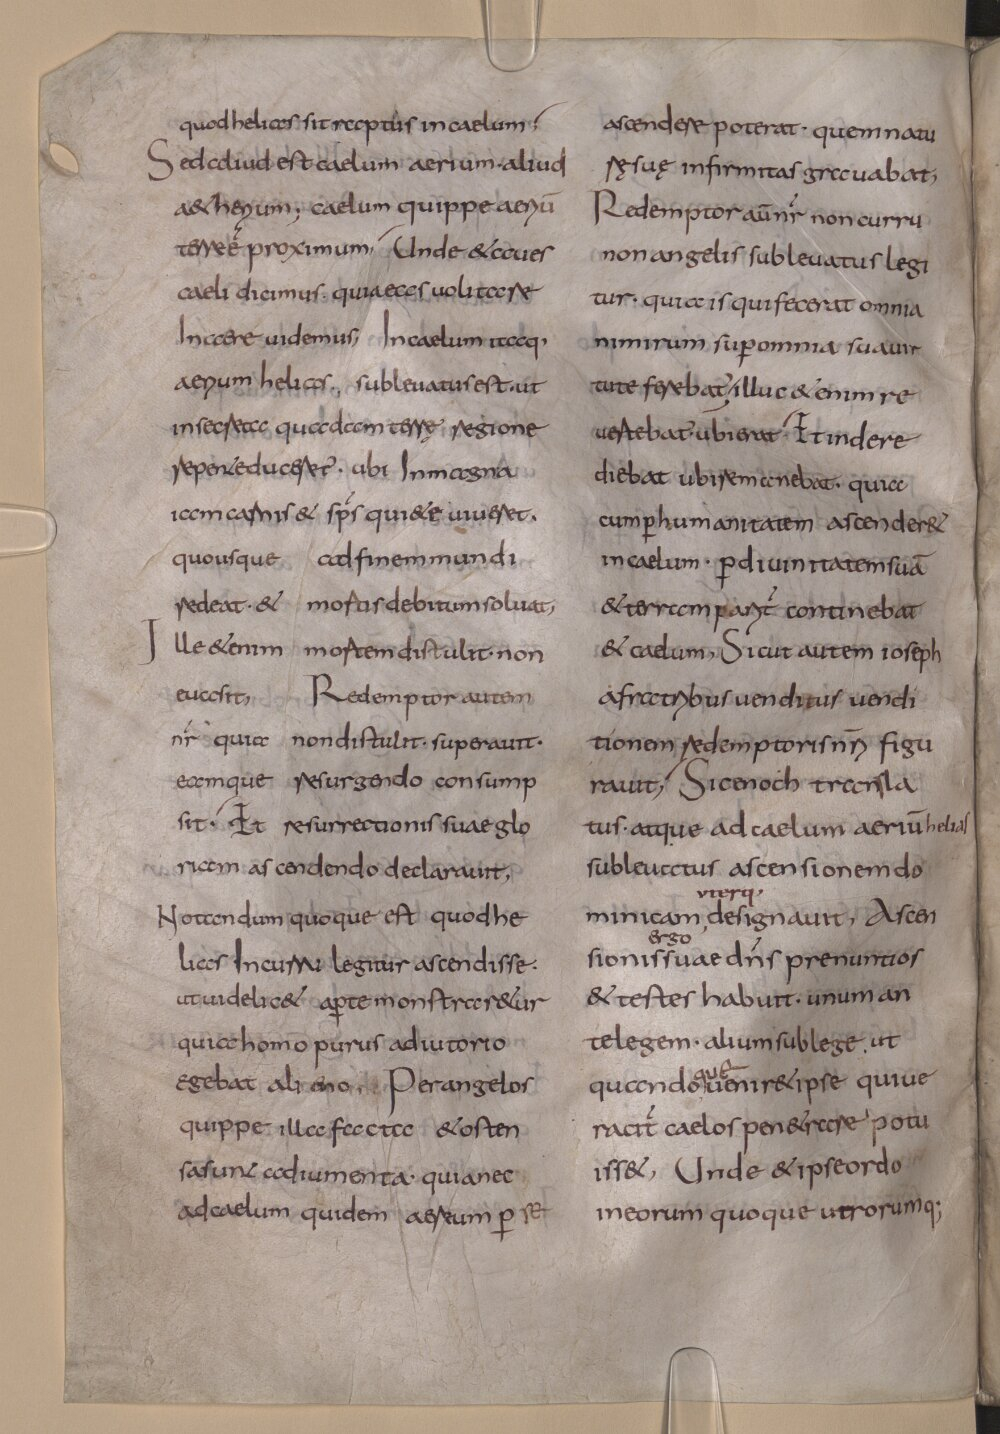 quod helias sit raptus in caelum;
Sed aliud est caelum aerium· aliud
a&herium; caelum quippe aeriū
terre ē proximum; Unde & aues
caeli dicimus· quia eas uolitare
In aere uidemus; In caelum itaq·
aerium helias, subleuatus est· ut
in secreta quadam terre regione
repente duceret̄· ubi In magna
iam carnis & sp̄s quiete uiueret·
quousque ad finem mundi
redeat· & mortis debitum soluat;
Ille &enim mortem distulit· non
euasit; Redemptor autem
nr̄ quia non distulit· superauit·
eamque resurgendo consump
sit· Et resurrectionis suae glo
riam ascendendo declarauit;
Notandum quoque est quod he
lias In curru legitur ascendisse·
ut uidelic& aperte monstrar&ur
quia homo purus adiutorio
egebat alieno; Per angelos
quippe illa facta & osten
sa sunt adiumenta· quia nec
ad caelum quidem aereum p se
ascendere poterat· quem natu
rę suę infirmitas grauabat;
Redemptor aū nr̄ non curru
non angelis subleuatus legi
tur· quia is qui fecerat omnia
nimirum sup omnia sua uir
tute ferebat̄; illuc &enim re
uertebat̄ ubi erat· Et inde re
diebat ubi remanebat· quia
cum p humanitatem ascender&
in caelum· p diuinitatem suā
& terram pariter continebat
& caelum; Sicut autem ioseph
a fratribus uenditus uendi
tionem redemptoris nr̄i figu
rauit; Sic enoch transla
tus· atque ad caelum aeriū helias
subleuatus ascensionem do
uterq·
minicam designauit; Ascen
ergo
sionis suae dn̄s prenuntios
& testes habuit· unum an
te legem· alium sub lege· ut
quę
quando uenir& ipse qui ue
racit̄ caelos pen&rare potu
iss&; Unde & ipse ordo
in eorum quoque utrorumq;